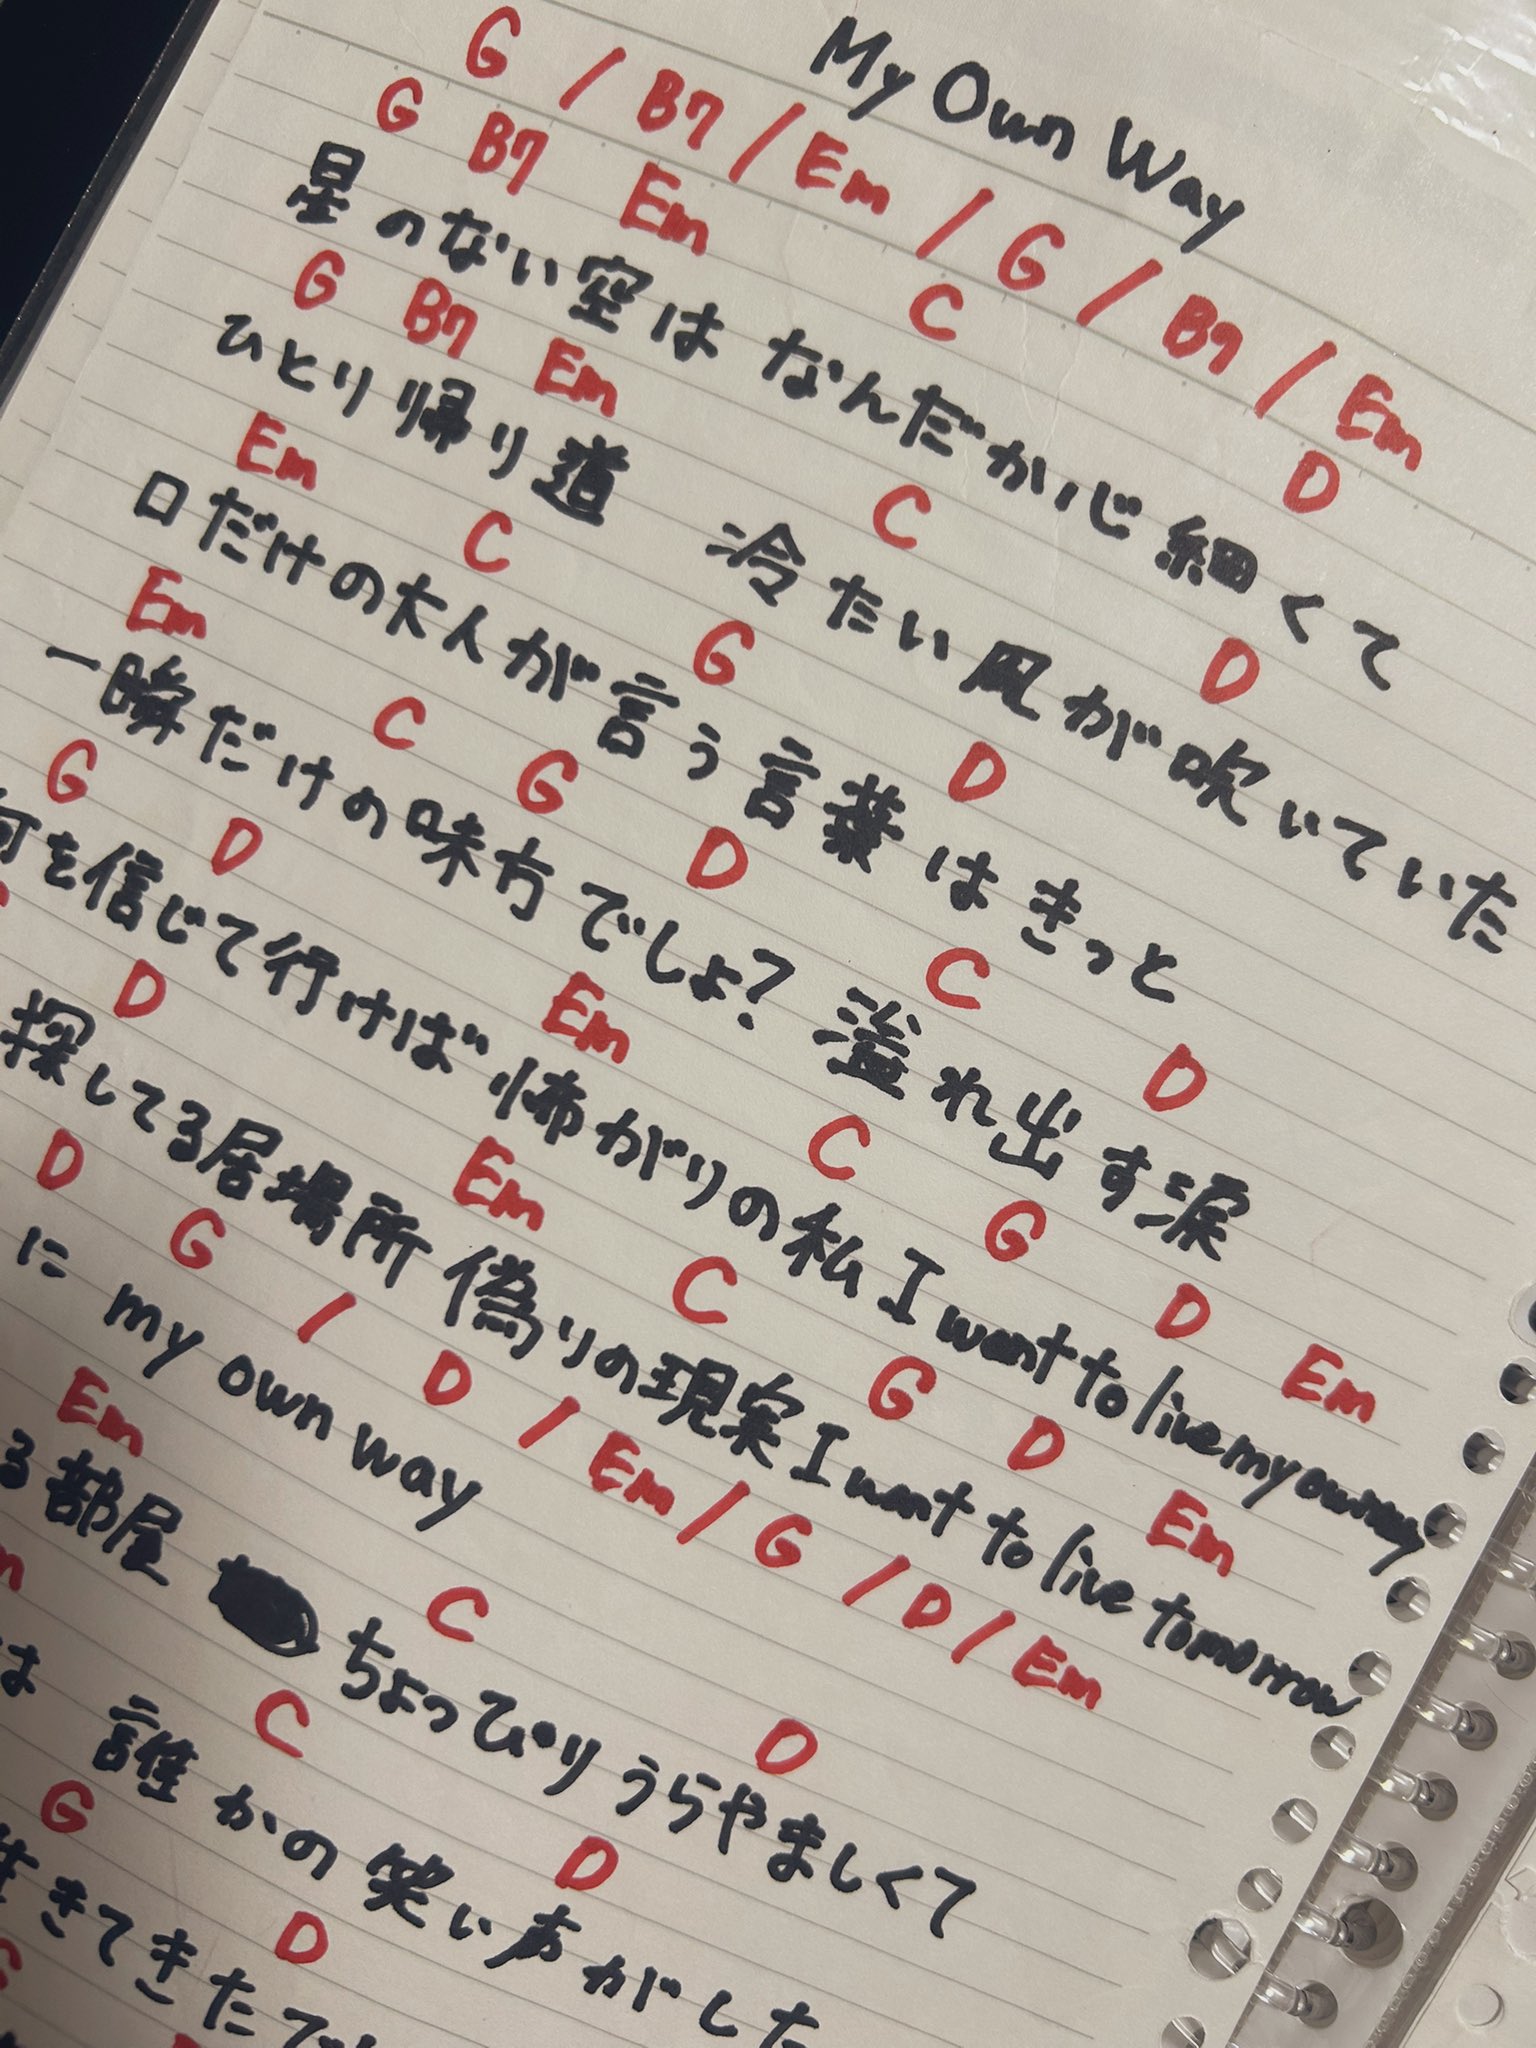 My Own Way
G / B7 / Em / G / B7 / Em
G B7 Em C D
星のない空は なんだか心細くて
G B7 Em C D
ひとり帰り道 冷たい風が吹いていた
Em C G D
口だけの大人が言う言葉はきっと
Em C G D C D
一瞬だけの味方でしょ? 溢れ出す涙
G D Em C G D Em
何を信じて行けば怖がりの私 I want to live my own way
D Em C G D Em
探してる居場所 偽りの現実 I want to live tomorrow
D G / D / Em / G / D / Em
に my own way
Em C D
る部屋 ちょっぴりうらやましくて
C D
は 誰かの笑い声がした
G D
生きてきた